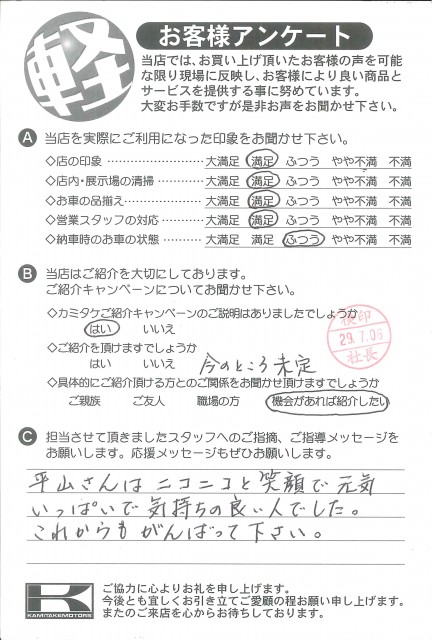 軽
お客様アンケート
当店では、お買い上げ頂いたお客様の声を可能
な限り現場に反映し、お客様により良い商品と
サービスを提供する事に努めています。
大変お手数ですが是非お声をお聞かせ下さい。
A 当店を実際にご利用になった印象をお聞かせ下さい。
◇店の印象 ………………… 大満足 満足 ふつう やや不満 不満
◇店内・展示場の清掃 ………… 大満足 満足 ふつう やや不満 不満
◇お車の品揃え ……………… 大満足 満足 ふつう やや不満 不満
◇営業スタッフの対応 ………… 大満足 満足 ふつう やや不満 不満
◇納車時のお車の状態 ………… 大満足 満足 ふつう やや不満 不満
B 当店はご紹介を大切にしております。
ご紹介キャンペーンについてお聞かせ下さい。
◇カミタケご紹介キャンペーンのご説明はありましたでしょうか
はい いいえ
検印
29.7.06
社長
◇ご紹介を頂けますでしょうか
はい いいえ 今のところ未定
◇具体的にご紹介頂ける方とのご関係をお聞かせ頂けますでしょうか
ご親族 ご友人 職場の方 機会があれば紹介したい
C 担当させて頂きましたスタッフへのご指摘、ご指導メッセージを
お願いします。応援メッセージもぜひお願いします。
平山さんはニコニコと笑顔で元気
いっぱいで気持ちの良い人でした。
これからもがんばって下さい。
K
KAMITAKEMOTORS
ご協力に心よりお礼を申し上げます。
今後とも宜しくお引き立てご愛顧の程お願い申し上げます。
またのご来店を心からお待ちしております。